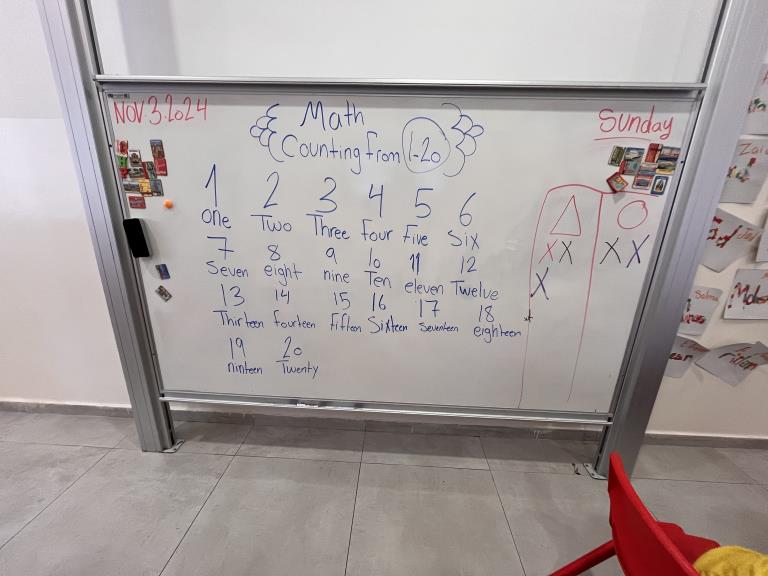 Nov.3.2024
Math
Sunday
Counting from 1-20
1 2 3 4 5 6
one Two Three Four Five Six
7 8 9 10 11 12
Seven eight nine Ten eleven Twelve
13 14 15 16 17 18
Thirteen fourteen Fifteen Sixteen Seventeen eighteen
19 20
ninteen Twenty
X X X X
X
Zai
Salma